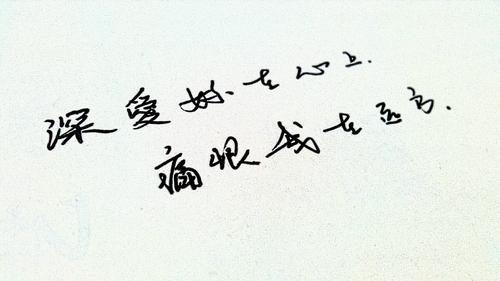 深爱妳在心上.
痛恨我在远方.